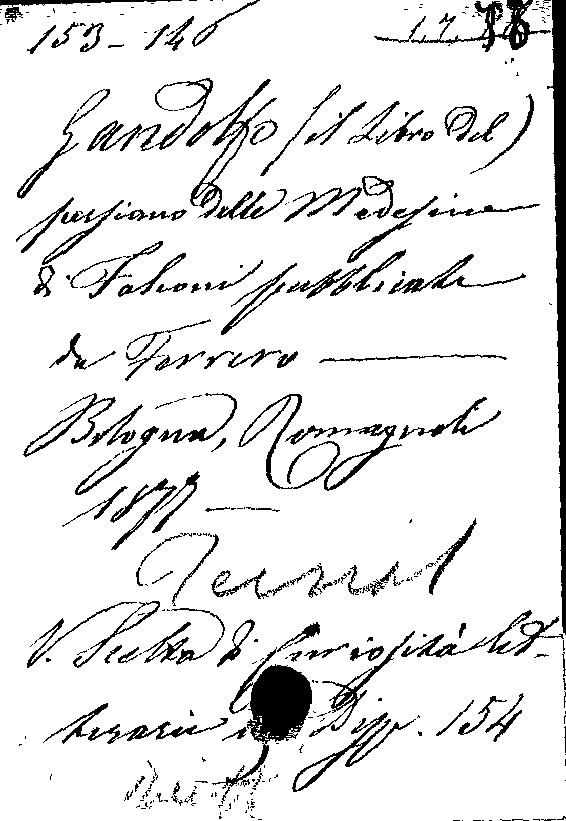 153-146 1.7.
Gandolfo (il Libro del)
persiano delle Medesine
di Falconi pubblicato
da Ferrero
Bologna, Romagnoli
1877
V. Scelta di Curiosità Let-
terarie Disp. 154